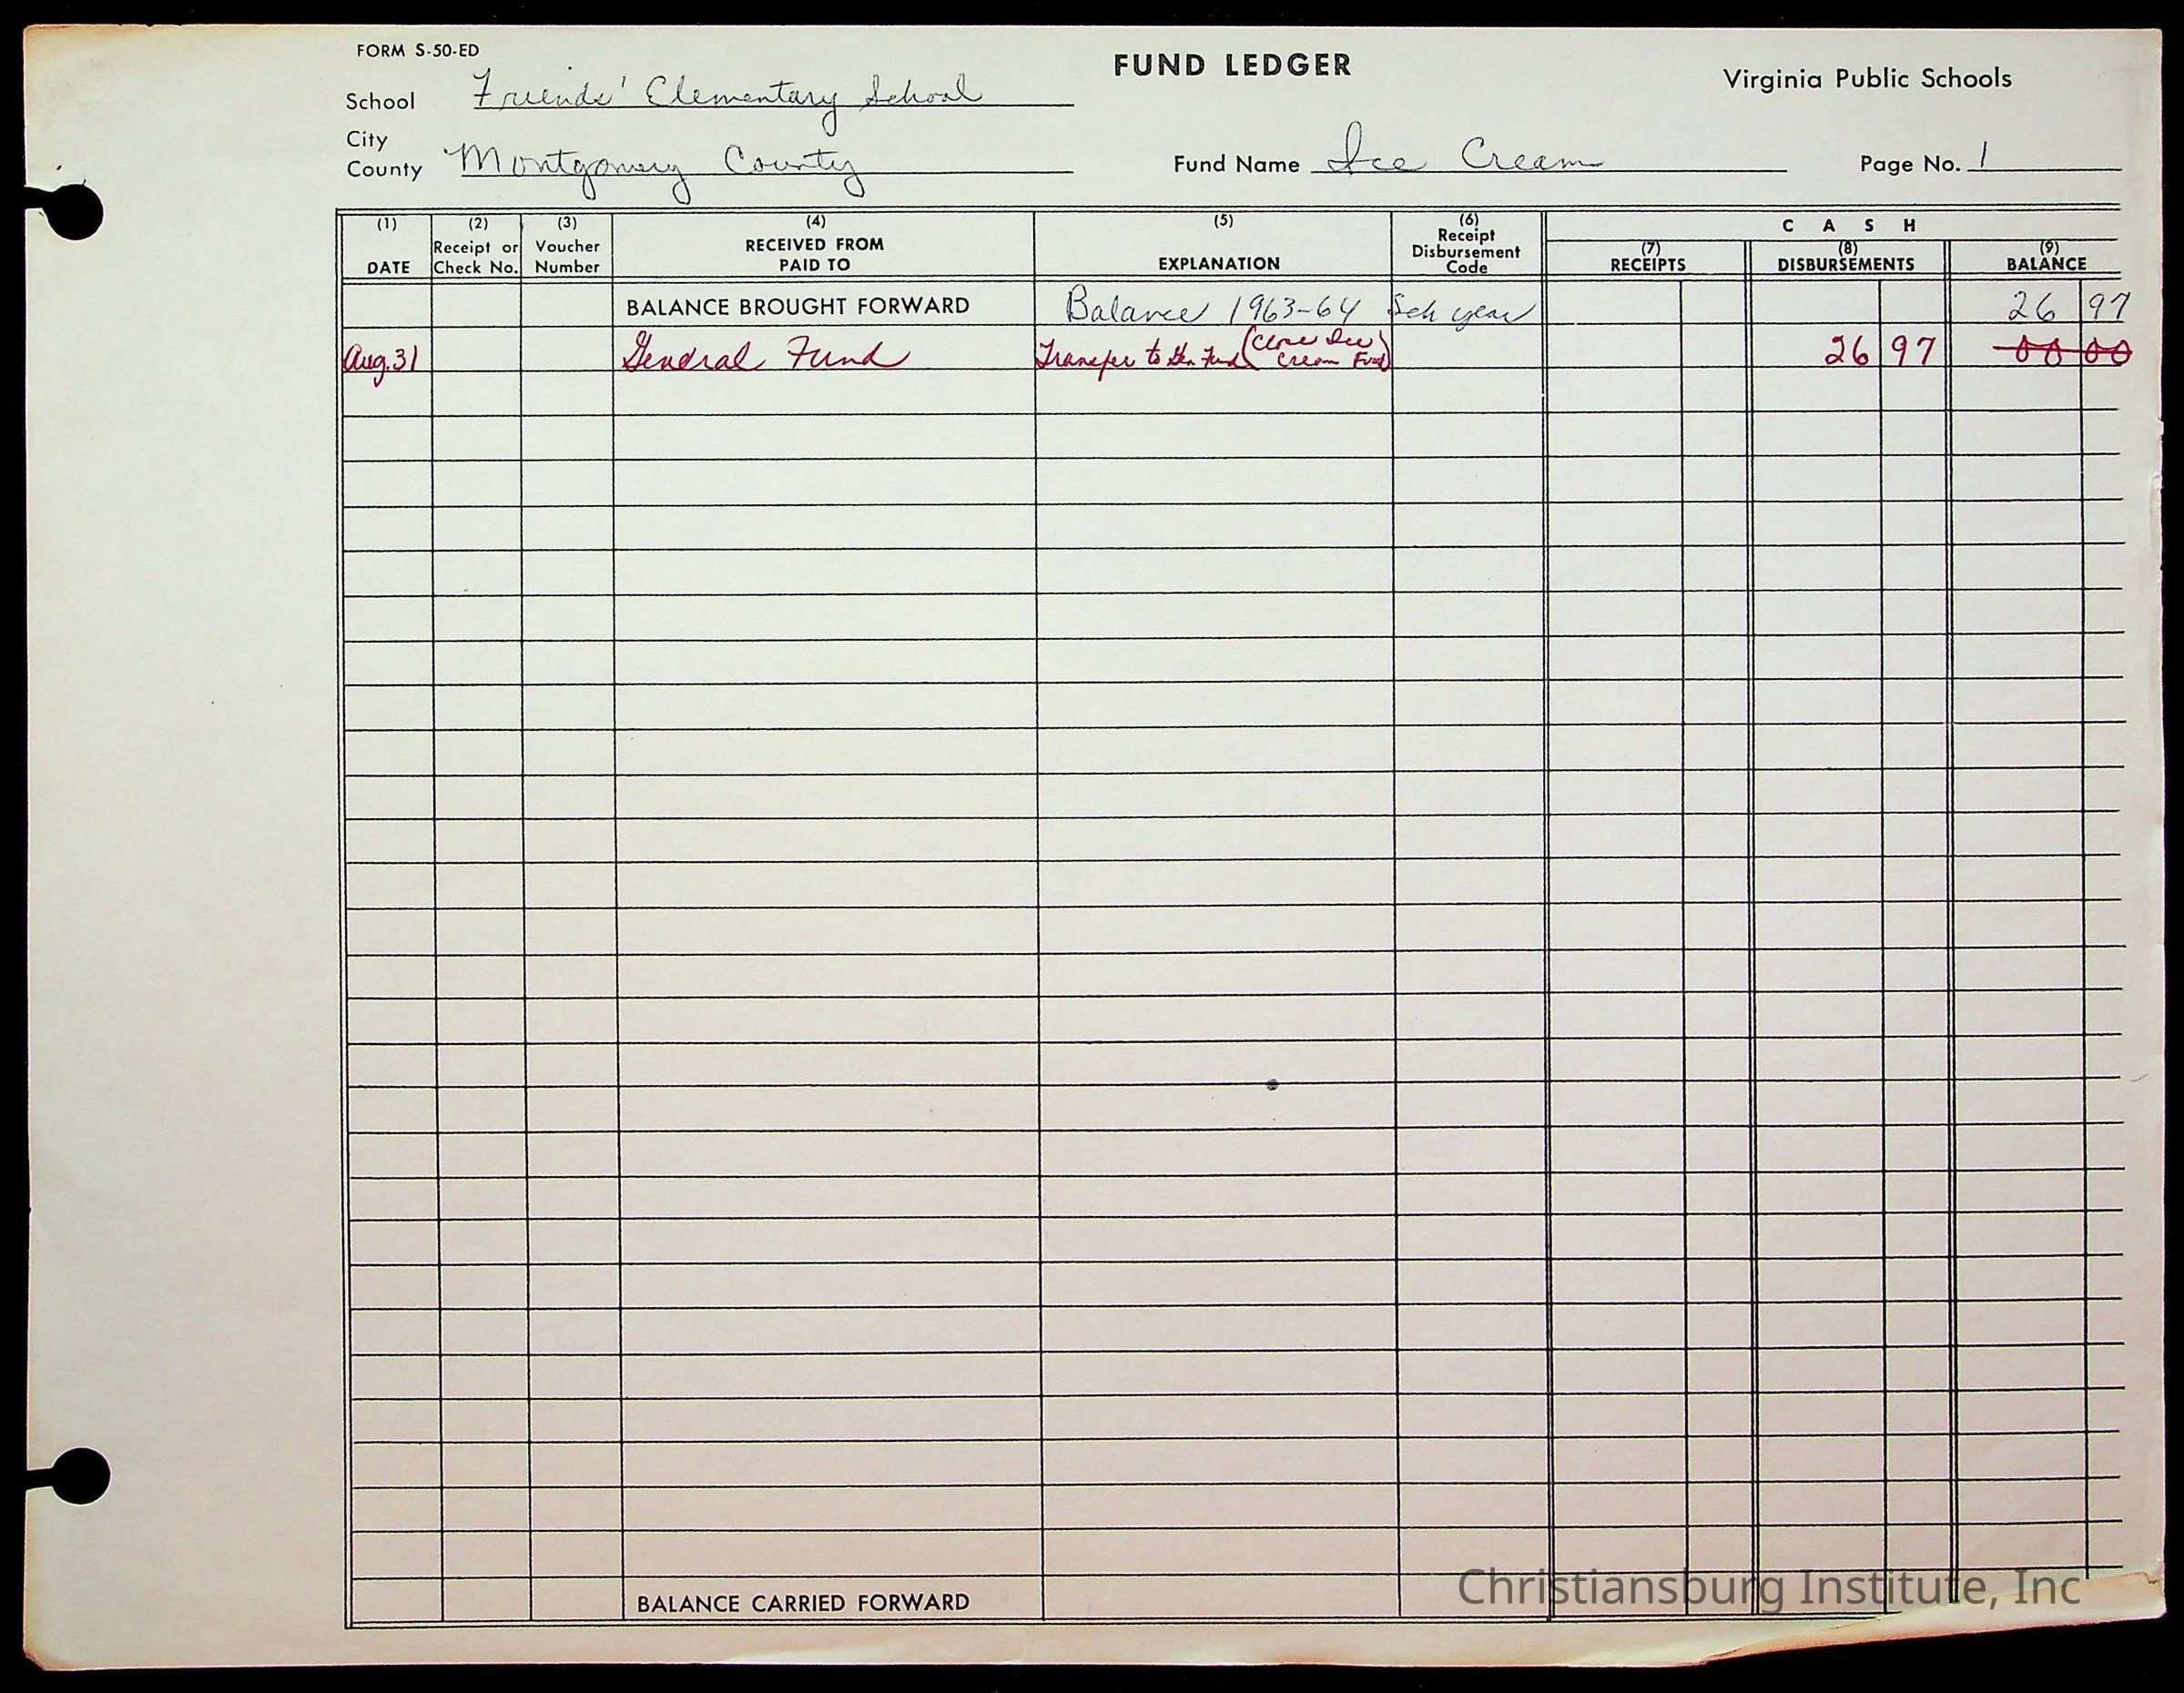 FORM S-50-ED
FUND LEDGER
Virginia Public Schools
School Friends' Elementary School
City
County Montgomery County
Fund Name Ice Cream
Page No. 1
(1) DATE
(2) Receipt or Check No.
(3) Voucher Number
(4) RECEIVED FROM PAID TO
(5) EXPLANATION
(6) Receipt Disbursement Code
CASH
(7) RECEIPTS
(8) DISBURSEMENTS
(9) BALANCE
BALANCE BROUGHT FORWARD Balance 1963-64 Sch year 26 97
Aug. 31 General Fund Transfer to Gen Fund (Close Ice Cream Fund) 26 97 00 00
BALANCE CARRIED FORWARD
Christiansburg Institute, Inc